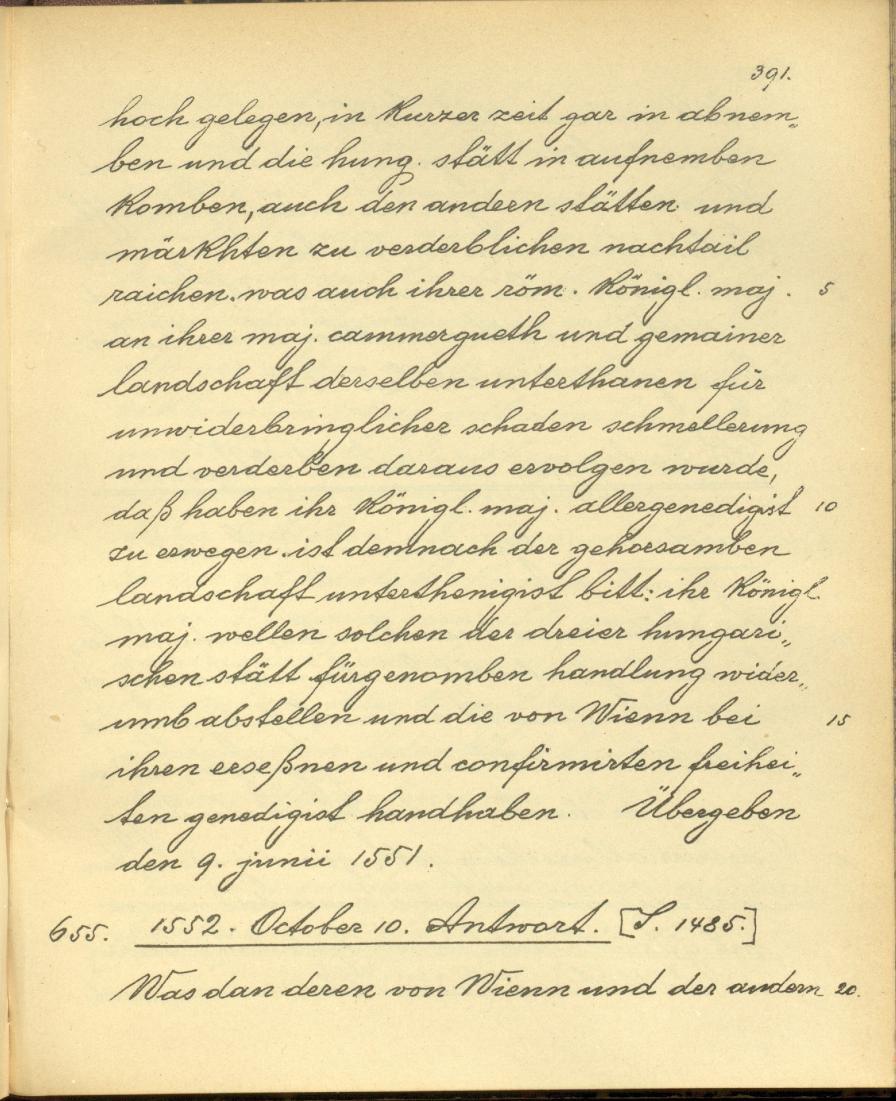 391.
hoch gelegen, in kurzer zeit gar in abnem„
ben und die hung. stätt in aufnemben
komben, auch den andern stätten und
märkhten zu verderblichen nachtail
raichen. was auch ihrer röm. königl. maj. 5
an ihrer maj. cammergueth und gemainer
landschaft derselben unterthanen für
unwiderbringlicher schaden schmellerung
und verderben daraus ervolgen wurde,
daß haben ihr königl. maj. allergenedigist 10
zu erwegen. ist demnach der gehorsamben
landschaft unterthenigist bitt: ihr königl.
maj. wellen solchen der dreier hungari„
schen stätt fürgenomben handlung wider„
umb abstellen und die von Wienn bei 15
ihren erseßnen und confirmirten freihei„
ten genedigist handhaben. Übergeben
den 9. junii 1551.
655. 1552. October 10. Antwort. [S. 1485.]
Was dan deren von Wienn und der andern 20.